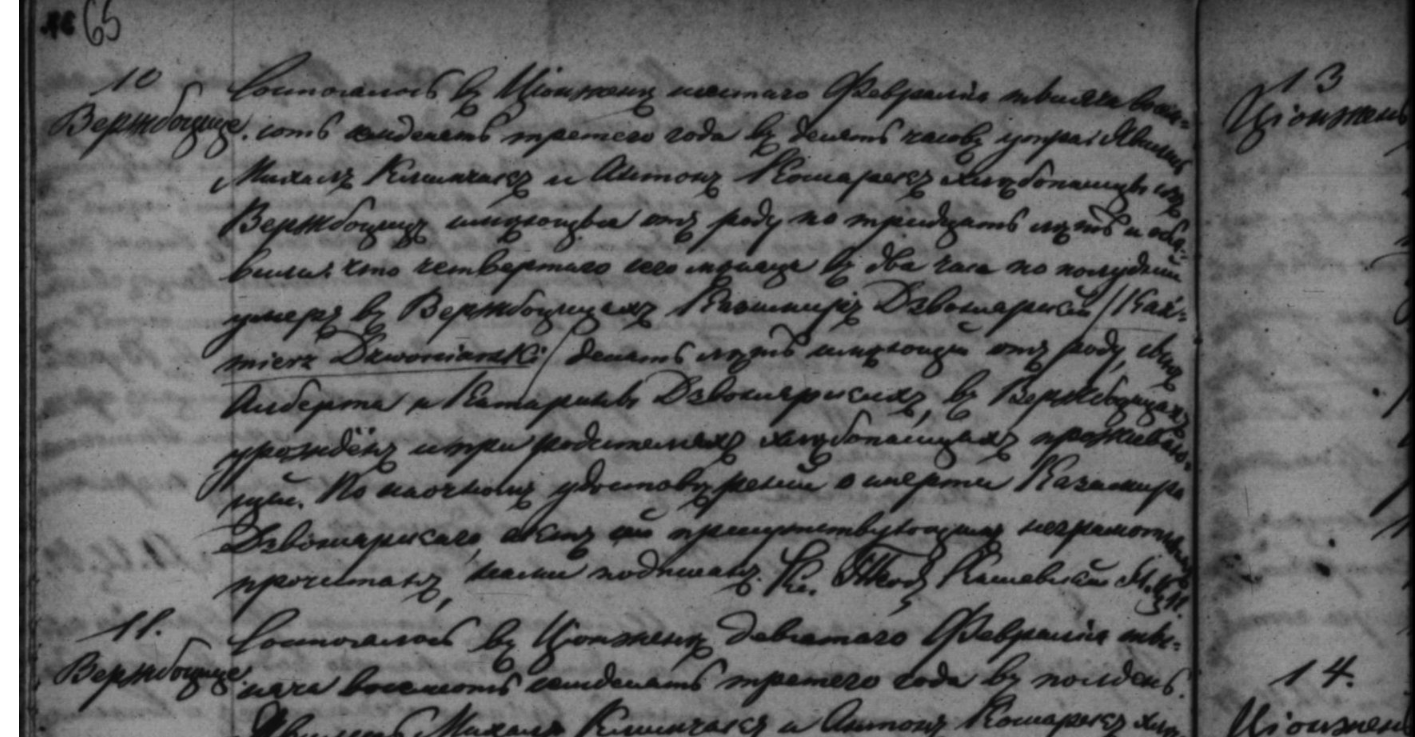 № 65
10
Вержбоцице.
Состоялось въ Ціонженѣ шестаго Февраля тысяча восем-
сотъ семдесятъ третего года въ девять часовъ утра. Явились
Михалъ Климчакъ и Антонъ Комарекъ хлѣбопашцы изъ
Вержбоцицъ имѣющые отъ роду по тридцать лѣтъ и объя-
вили что четвертаго сего мѣсяца въ два часа по полудни
умеръ въ Вержбоцицахъ Казимиръ Дзвонярскій /Kaź-
mierz Dzwoniarski/ девять лѣтъ имѣющій отъ роду, сынъ
Алберта и Катарины Дзвонярскихъ, въ Вержбоцицахъ
урождёнъ и при родителяхъ хлѣбопашцахъ проживаю-
щій. По наочномъ удостовѣреніи о смерти Казимира
Дзвонярскаго, актъ сей присутствующимъ неграмотнымъ
прочитанъ, нами подписанъ. Кс.
11.
Вержбоцице.
Состоялось въ Ціонженѣ девятаго Февраля ты-
сяча восемсотъ семдесятъ третего года въ полдень.
Явились Михалъ Климчакъ и Антонъ Комарекъ
13
Ціонжень
14.
Ціонжень